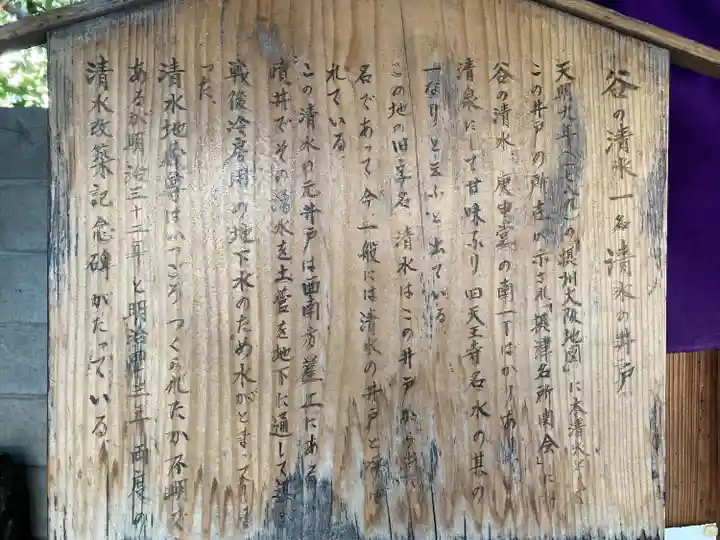 谷の清水 一名 清水の井戸
天明九年(一七八九)の「摂州大阪地図」に本清水として
この井戸の所在が示され「摂津名所図会」に
谷の清水 庚申堂の南一丁ばかりあり
清泉にして甘味なり 四天王寺名水の其の
一なりと云ふと出ている。
この地の旧字名 清水はこの井戸から出た
名であって今 一般には清水の井戸と呼ば
れている。
この清水の元井戸は西南方崖上にある
噴井でその清水を土管を地下に通して
戦後冷房用の地下水のため水がとまって
った。
清水地蔵尊はいつごろつくられたか不明で
あるが明治三十二年と明治四十三年両度の
清水改築記念碑がたっている